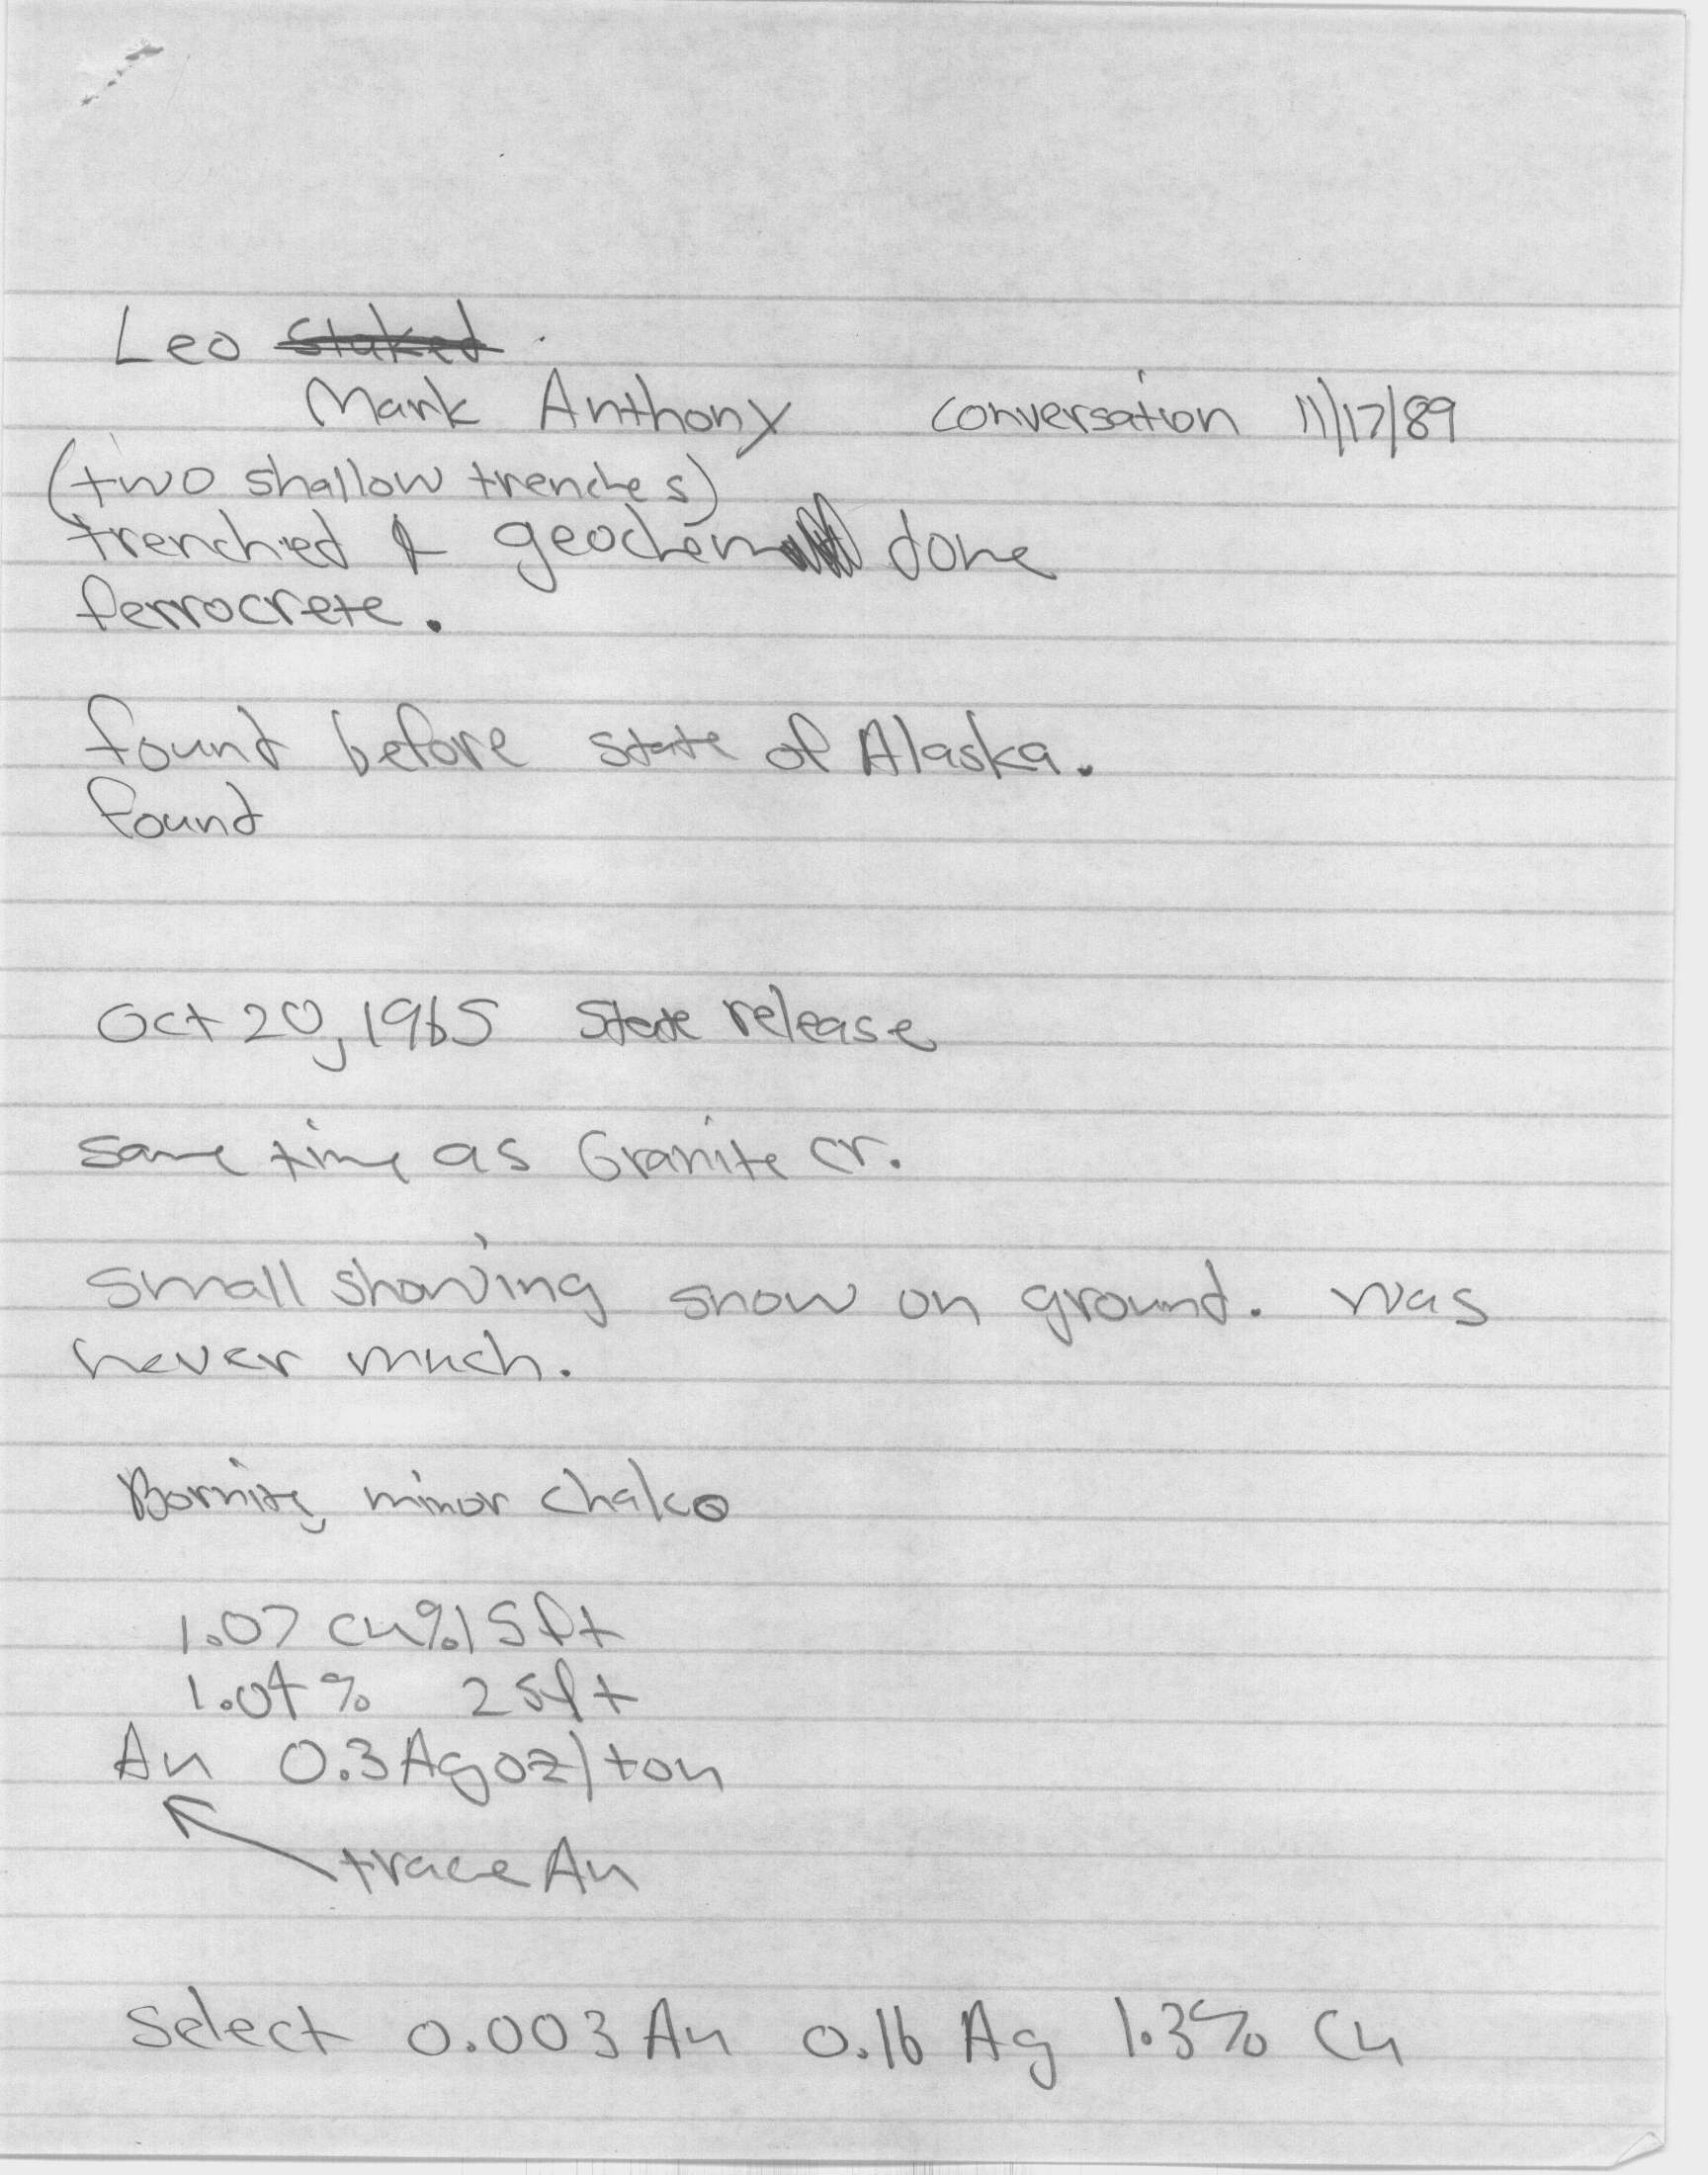 Leo Staked
Mark Anthony conversation 11/17/89
(two shallow trenches)
trenched & geochem done
ferrocrete.
found before state of Alaska.
found
Oct 20, 1965 State release
same time as Granite cr.
small showing snow on ground. was
never much.
Bornite, minor chalco
1.07 Cu% 15 ft
1.04% 25ft
Au 0.3 Ag oz/ton
trace Au
Select 0.003 Au 0.16 Ag 1.3% Cu